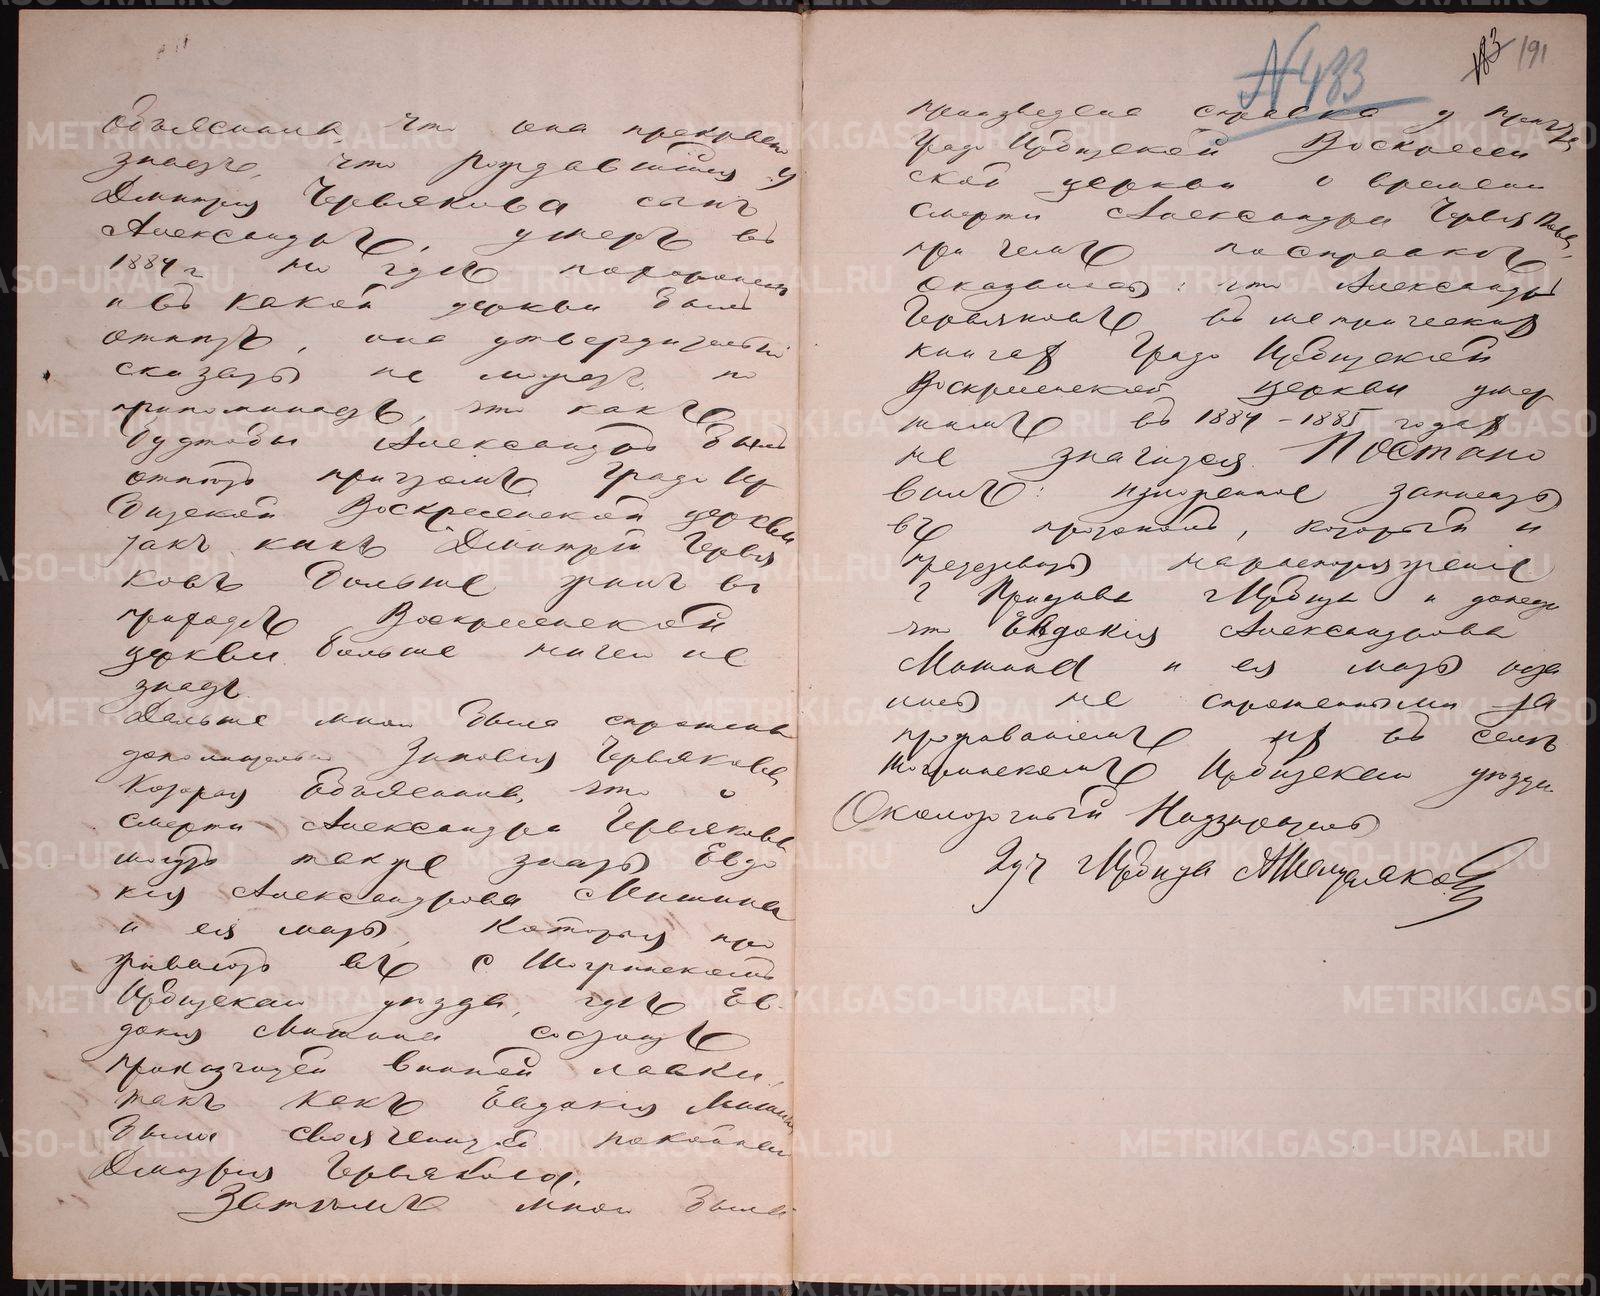 объяснила что она прекрасно
знаетъ, что рождавшійся у
Дмитрія Червякова сынъ
Александръ, умеръ въ
1884 г но гдѣ похороненъ
и въ какой церкви былъ
отпѣтъ, она утвердительно
сказать не можетъ, но
припоминаетъ, что какъ
будтобы Александръ былъ
отпѣтъ причтомъ Градо Ир
битской Воскресенской церкви
такъ какъ Дмитрій Червя
ковъ больше жилъ въ
приходѣ Воскресенской
церкви. больше ничего не
знаетъ.
Дальше мною была спрошена
дополнительно Зиновія Червякова
которая объяснила, что о
смерти Александра Червякова
могутъ также знать Евдо
кія Александрова Мишина
и ея мать, которыя про
живаютъ въ с Шогринскомъ
Ирбитскаго уѣзда, гдѣ Ев
докія Мишина состоитъ
приказчицей винной лавки,
такъ какъ Евдокія Мишина
была своячницей покойнаго
Дмитрія Червякова.
Затѣмъ мною была
N 433
183 191
произведена справка у причта
Градо Ирбитской Воскресен
ской церкви о времени
смерти Александра Червякова,
при чемъ по справкѣ
оказалось: что Александръ
Червяковъ въ метрическихъ
книгахъ Градо Ирбитской
Воскресенской церкви умер
шимъ въ 1884 – 1885 годахъ
не значится. Постано
вилъ: изложенное записать
въ протоколъ, который и
представить на распоряженіе
г Пристава г Ирбита и донести
что Евдокія Александрова
Мишина и ея мать оста
лись не спрошенными за
проживаніемъ ихъ въ селѣ
Шогринскомъ Ирбитскаго уѣзда.
Околоточный Надзиратель
2 уч г Ирбита